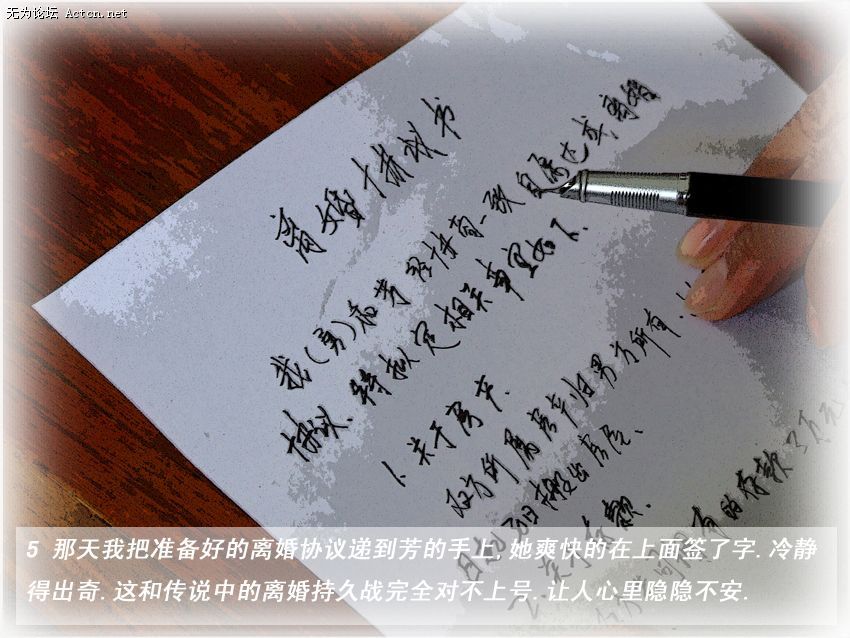 无为论坛 Actcn.net
离婚协议书
我(勇)和芳
自愿达成离婚
协议、特拟定相关事宜如下.
1、关于房产.
双方所属房产归男方所有.
日搬出房屋.
存款.
有的存款
5 那天我把准备好的离婚协议递到芳的手上,她爽快的在上面签了字.冷静
得出奇.这和传说中的离婚持久战完全对不上号.让人心里隐隐不安.